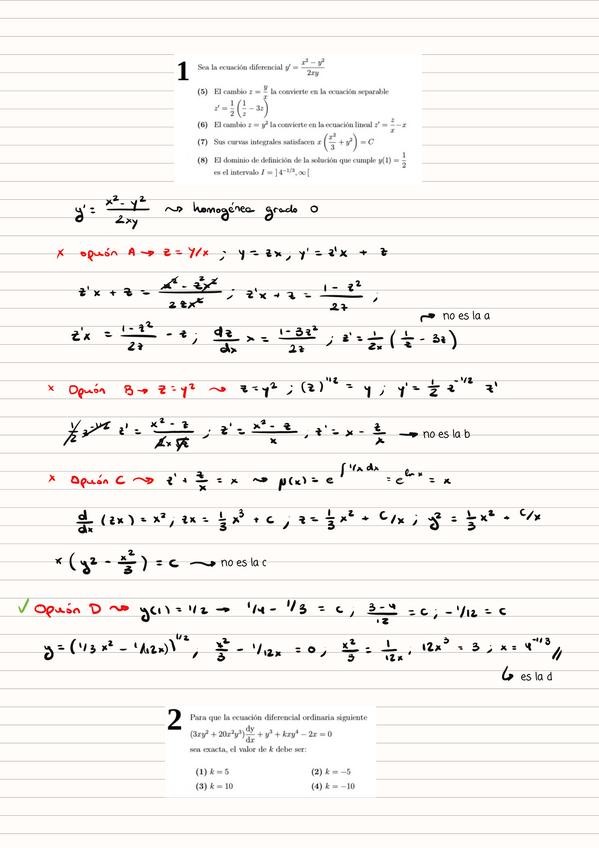 1 Sea la ecuación diferencial y' = (x² − y²)/(2xy)
(5) El cambio z = y/x la convierte en la ecuación separable
z' = 1/2 (1/z − 3z)
(6) El cambio z = y² la convierte en la ecuación lineal z' = z/x − x
(7) Sus curvas integrales satisfacen x (x²/3 + y²) = C
(8) El dominio de definición de la solución que cumple y(1) = 1/2
es el intervalo I = ]4^(-1/3), ∞[
y' = (x² - y²)/(2xy) ⇝ homogénea grado 0
x opción A → z = y/x ; y = zx, y' = z'x + z
z'x + z = (x² - z²x²)/(2zx²) ; z'x + z = (1 - z²)/(2z) ;
→ no es la a
z'x = (1-z²)/(2z) - z ; dz/dx x = (1-3z²)/(2z) ; z' = 1/(2x) (1/z - 3z)
x Opción B → z = y² ⇝ z = y² ; (z)^(1/2) = y ; y' = 1/2 z^(-1/2) z'
1/2 z^(-1/2) z' = (x² - z)/(2x√z) ; z' = (x² - z)/x , z' = x - z/x → no es la b
x Opción C ⇝ z' + z/x = x ⇝ μ(x) = e^(∫1/x dx) = e^(ln x) = x
d/dx (zx) = x² ; zx = 1/3 x³ + c ; z = 1/3 x² + C/x ; y² = 1/3 x² + C/x
x (y² - x²/3) = c → no es la c
✓ Opción D ⇝ y(1) = 1/2 → 1/4 - 1/3 = c , (3-4)/12 = c ; -1/12 = c
y = (1/3 x² - 1/12x)^(1/2) , x²/3 - 1/12x = 0 , x²/3 = 1/12x , 12x³ = 3 ; x = 4^(-1/3) //
↳ es la d
2 Para que la ecuación diferencial ordinaria siguiente
(3xy² + 20x²y³) dy/dx + y³ + kxy⁴ − 2x = 0
sea exacta, el valor de k debe ser:
(1) k = 5 (2) k = −5
(3) k = 10 (4) k = −10